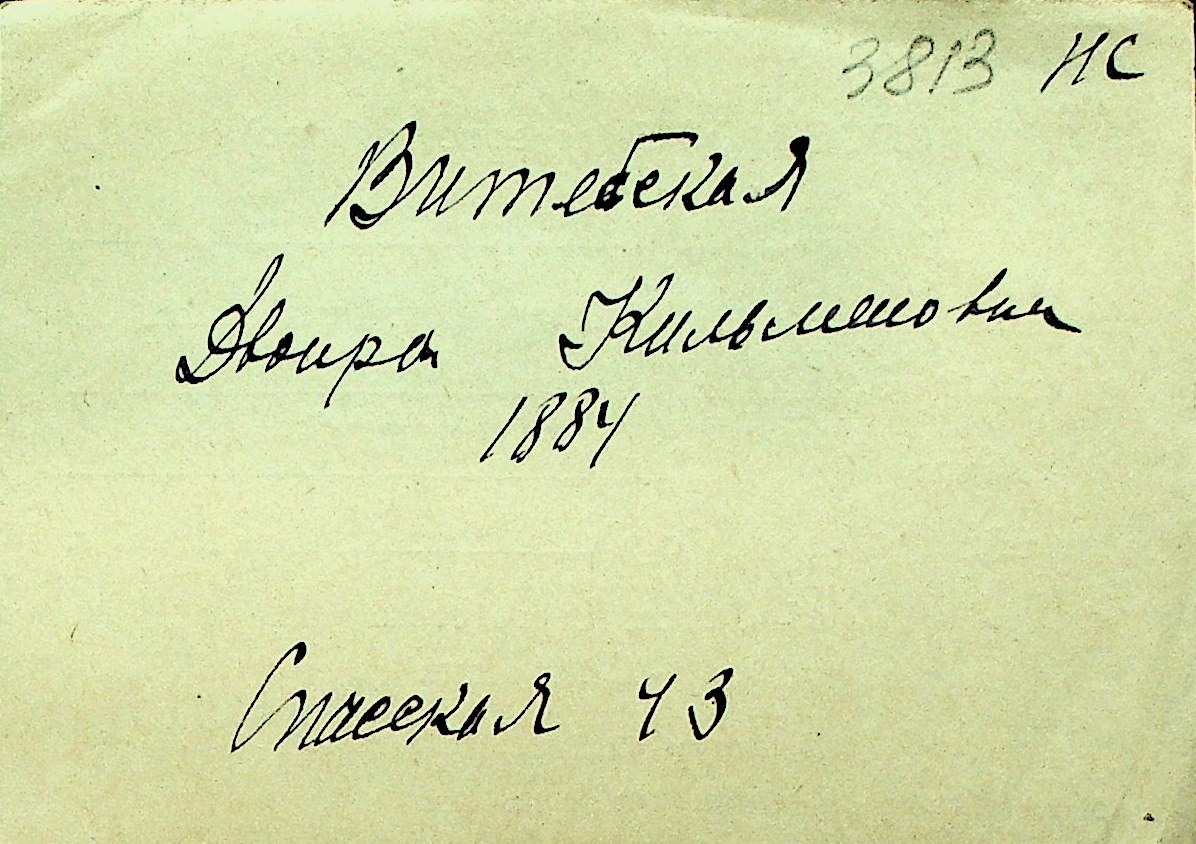 3813 НС
Витебская
Двоира Кильмановна
1884
Спасская 43